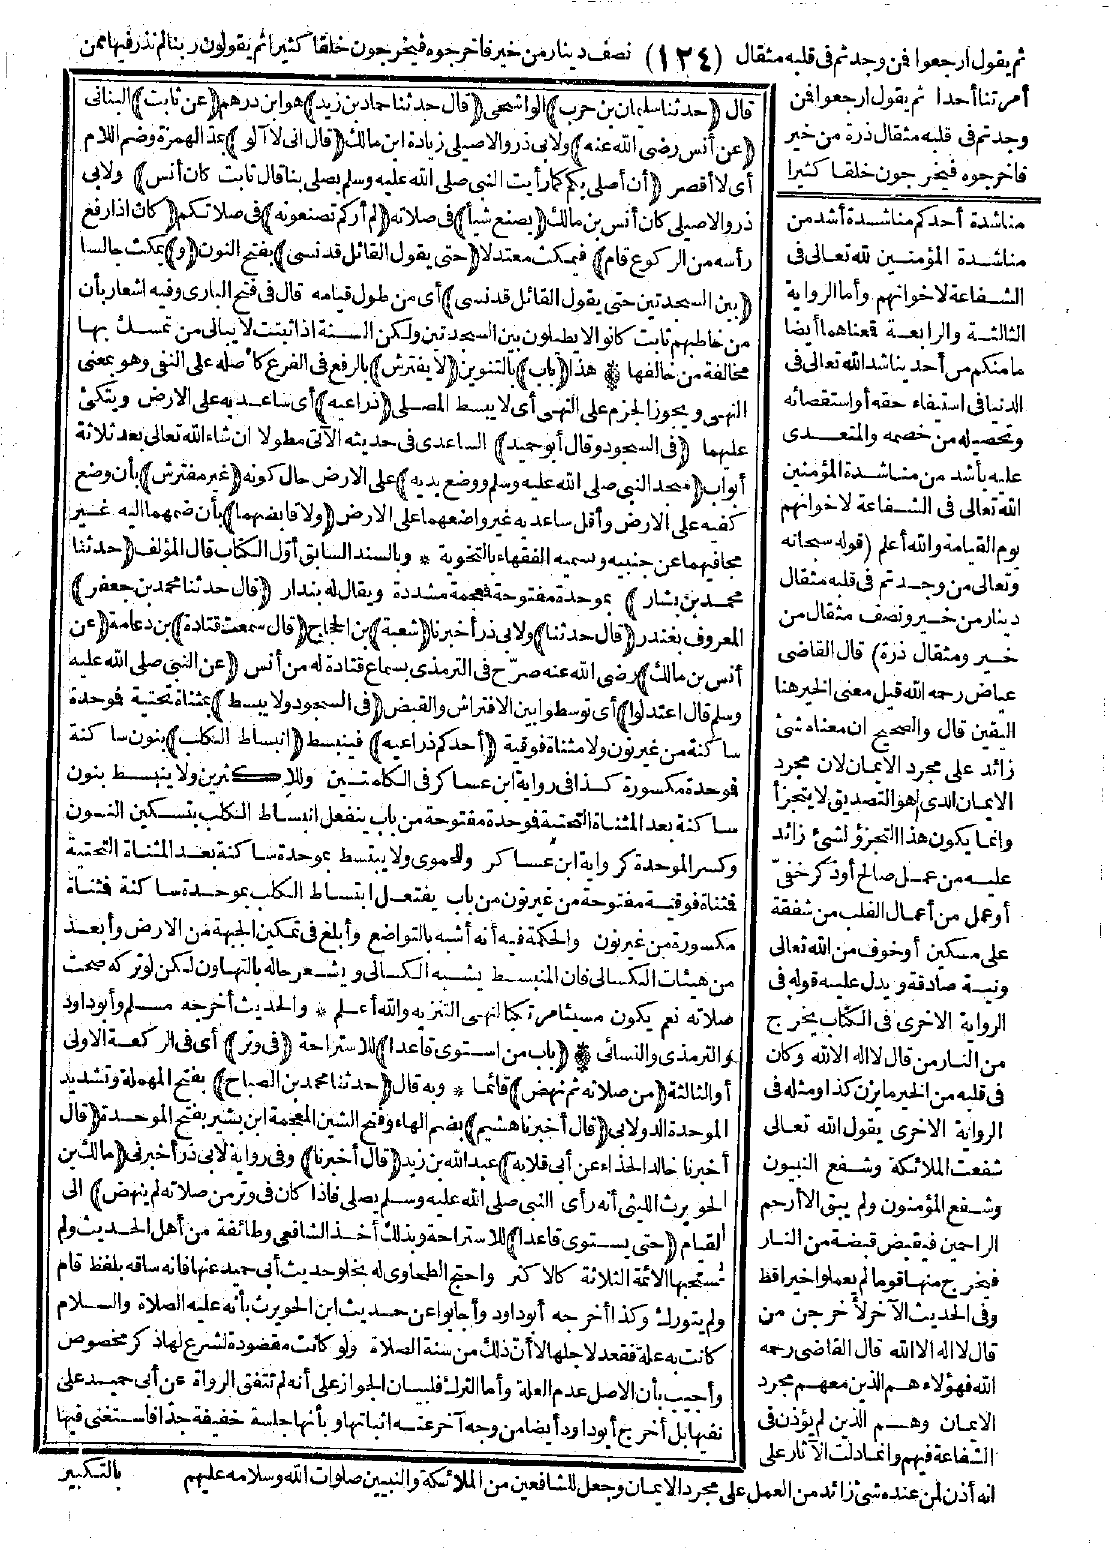 ثم يقول ارجعوا فمن وجدتم في قلبه مثقال (١٢٤) نصف دينار من خير فاخرجوه فيخرجون خلقا كثيرا ثم يقولون ربنا لم نذر فيها ممن
أمرتنا أحدا ثم يقول ارجعوا فمن
وجدتم في قلبه مثقال ذرة من خير
فاخرجوه فيخرجون خلقا كثيرا
مناشدة أحدكم مناشدة أشد من
مناشدة المؤمنين لله تعالى في
الشفاعة لاخوانهم وأما الرواية
الثالثة والرابعة فمعناهما أيضا
ما منكم من أحد يناشد الله تعالى في
الدنيا في استيفاء حقه أو استقصائه
وتحصيله من خصمه والمتعدى
عليه بأشد من مناشدة المؤمنين
الله تعالى في الشفاعة لاخوانهم
يوم القيامة والله أعلم (قوله سبحانه
وتعالى من وجدتم في قلبه مثقال
دينار من خير ونصف مثقال من
خير ومثقال ذرة) قال القاضى
عياض رحمه الله قيل معنى الخير هنا
اليقين قال والصحيح ان معناه شئ
زائد على مجرد الايمان لان مجرد
الايمان الذى هو التصديق لا يتجزأ
وانما يكون هذا التجزؤ لشئ زائد
عليه من عمل صالح أو ذكر خفىّ
أو عمل من أعمال القلب من شفقة
على مسكين أو خوف من الله تعالى
ونية صادقة ويدل عليه قوله في
الرواية الاخرى في الكتاب يخرج
من النار من قال لا اله الا الله وكان
في قلبه من الخير ما يزن كذا ومثله في
الرواية الاخرى يقول الله تعالى
شفعت الملائكة وشفع النبيون
وشفع المؤمنون ولم يبق الا أرحم
الراحمين فيقبض قبضة من النار
فيخرج منها قوما لم يعملوا خيرا قط
وفي الحديث الآخر لأخرجن من
قال لا اله الا الله قال القاضى رحمه
الله فهؤلاء هم الذين معهم مجرد
الايمان وهم الذين لم يؤذن في
الشفاعة فيهم وانما دلت الآثار على
انه أذن لمن عنده شئ زائد من العمل على مجرد الايمان وجعل للشافعين من الملائكة والنبيين صلوات الله وسلامه عليهم
قال (حدثنا سليمان بن حرب) الواشحى (قال حدثنا حماد بن زيد) هو ابن درهم (عن ثابت) البنانى
(عن أنس رضى الله عنه) ولابى ذر والاصيلى زيادة ابن مالك (قال انى لا آلو) بمد الهمزة وضم اللام
أى لا أقصر (أن أصلى بكم كما رأيت النبى صلى الله عليه وسلم يصلى بنا قال ثابت كان أنس) ولابى
ذر والاصيلى كان أنس بن مالك (يصنع شيأ) في صلاته (لم أركم تصنعونه) في صلاتكم (كان اذا رفع
رأسه من الركوع قام) فيمكث معتدلا (حتى يقول القائل قد نسى) بفتح النون (و) يمكث جالسا
(بين السجدتين حتى يقول القائل قد نسى) أى من طول قيامه قال في فتح البارى وفيه اشعار بأن
من خاطبهم ثابت كانوا لا يطيلون بين السجدتين ولكن السنة اذا ثبتت لا يبالى من تمسك بها
مخالفة من خالفها * هذا (باب) بالتنوين (لا يفترش) بالرفع في الفرع كأصله على النفى وهو بمعنى
النهى ويجوز الجزم على النهى أى لا يبسط المصلى (ذراعيه) أى ساعديه على الارض ويتكئ
عليهما (في السجود وقال أبو حميد) الساعدى في حديثه الآتى مطولا ان شاء الله تعالى بعد ثلاثة
أبواب (سجد النبى صلى الله عليه وسلم ووضع يديه) على الارض حال كونه (غير مفترش) بأن وضع
كفيه على الارض وأقل ساعديه غير واضعهما على الارض (ولا قابضهما) بأن ضمهما اليه غير
مجافيهما عن جنبيه ويسميه الفقهاء بالتخوية * وبالسند السابق أوّل الكتاب قال المؤلف (حدثنا
محمد بن بشار) بموحدة مفتوحة فمعجمة مشددة ويقال له بندار (قال حدثنا محمد بن جعفر)
المعروف بغندر (قال حدثنا) ولابى ذر أخبرنا (شعبة) بن الحجاج (قال سمعت قتادة) بن دعامة (عن
أنس بن مالك) رضى الله عنه صرّح في الترمذى بسماع قتادة له من أنس (عن النبى صلى الله عليه
وسلم قال اعتدلوا) أى توسطوا بين الافتراش والقبض (في السجود ولا يبسط) بمثناة تحتية فموحدة
ساكنة من غير نون ولا مثناة فوقية (أحدكم ذراعيه) فينبسط (انبساط الكلب) بنون ساكنة
فموحدة مكسورة كذا في رواية ابن عساكر في الكلمتين وللاكثرين ولا ينبسط بنون
ساكنة بعد المثناة التحتية فموحدة مفتوحة من باب ينفعل انبساط الكلب بتسكين النون
وكسر الموحدة كرواية ابن عساكر وللحموى ولا يبتسط بموحدة ساكنة بعد المثناة التحتية
فمثناة فوقية مفتوحة من غير نون من باب يفتعل ابتساط الكلب بموحدة ساكنة فمثناة
مكسورة من غير نون والحكمة فيه أنه أشبه بالتواضع وأبلغ في تمكين الجبهة من الارض وأبعد
من هيئات الكسالى فان المنبسط يشبه الكسالى ويشعر حاله بالتهاون لكن لو تركه صحت
صلاته نعم يكون مسيئا مرتكبا لنهى التنزيه والله أعلم * والحديث أخرجه مسلم وأبو داود
والترمذى والنسائى * (باب من استوى قاعدا) للاستراحة (في وتر) أى في الركعة الاولى
أو الثالثة (من صلاته ثم نهض) قائما * وبه قال (حدثنا محمد بن الصباح) بفتح المهملة وتشديد
الموحدة الدولابى (قال أخبرنا هشيم) بضم الهاء وفتح الشين المعجمة ابن بشير بفتح الموحدة (قال
أخبرنا خالد الحذاء عن أبى قلابة) عبد الله بن زيد (قال أخبرنا) وفي رواية لابى ذر أخبرنى (مالك بن
الحويرث الليثى أنه رأى النبى صلى الله عليه وسلم يصلى فاذا كان في وتر من صلاته لم ينهض) الى
القيام (حتى يستوى قاعدا) للاستراحة وبذلك أخذ الشافعى وطائفة من أهل الحديث ولم
يستحبها الائمة الثلاثة كالاكثر واحتج الطحاوى له بخلو حديث أبى حميد عنها فانه ساقه بلفظ قام
ولم يتورك وكذا أخرجه أبو داود وأجابوا عن حديث ابن الحويرث بأنه عليه الصلاة والسلام
كانت به علة فقعد لاجلها لا أن ذلك من سنة الصلاة ولو كانت مقصودة لشرع لها ذكر مخصوص
وأجيب بأن الاصل عدم العلة وأما الترك فلبيان الجواز على أنه لم تتفق الرواة عن أبى حميد على
نفيها بل أخرج أبو داود أيضا من وجه آخر عنه اثباتها وبأنها جلسة خفيفة جدا فاستغنى فيها
بالتكبير